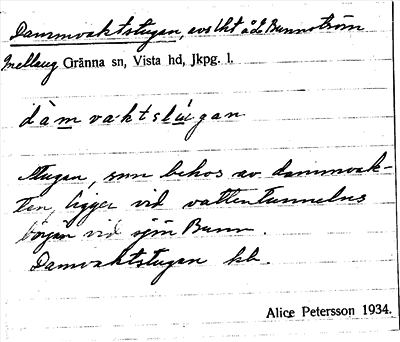 Dammvaktstugan, avs lht å Bunnström
Mellang Gränna sn, Vista hd, Jkpg. l.
dàmvaktstúgan
Stugan, som bebos av dammvak-
ten, ligger vid vattentunnelns
början vid sjön Bunn.
Damvaktstugan kb.
Alice Petersson 1934.